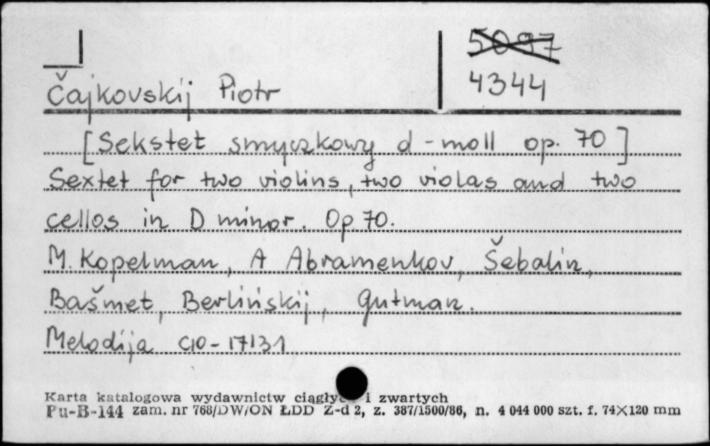 5097
4344
Čajkovskij Piotr
[Sekstet smyczkowy d-moll op. 70]
Sextet for two violins, two violas and two
cellos in D minor. Op 70.
M. Kopelman, A Abramenkov, Šebalin,
Bašmet, Berlinskij, Gutman.
Melodija C10-17131
Karta katalogowa wydawnictw ciągłyc i zwartych
Pu-B-144 zam. nr 768/DW/ON ŁDD Z-d 2, z. 387/1500/86, n. 4 044 000 szt. f. 74×120 mm